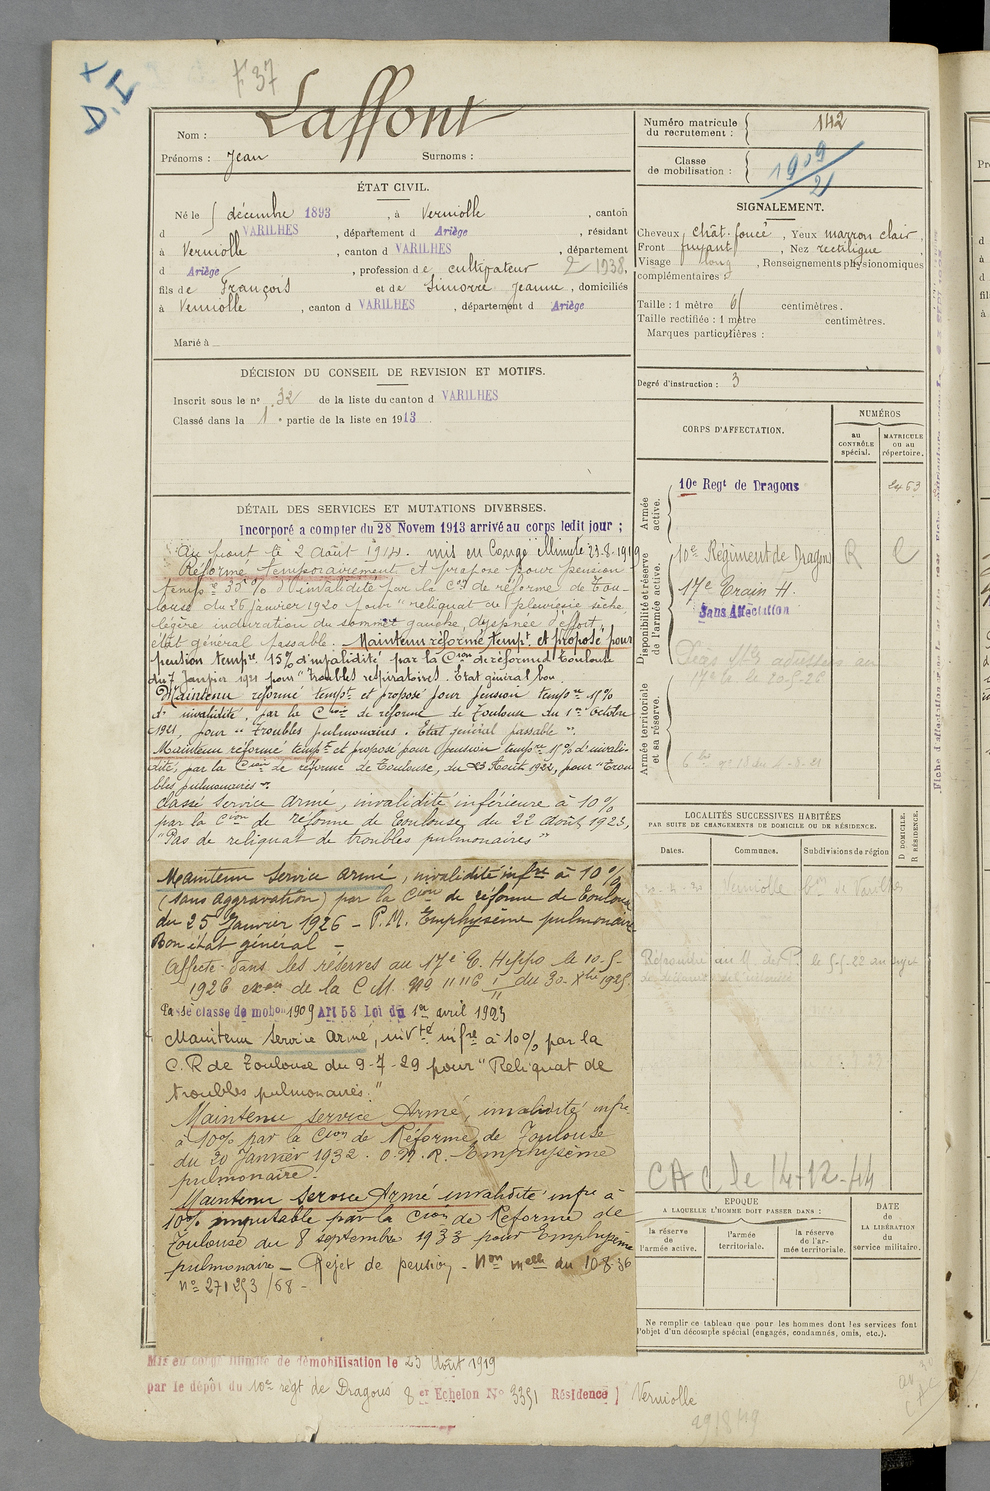 F 37
Laffont
Nom :
Prénoms : Jean Surnoms :
Numéro matricule
du recrutement : 142
Classe
de mobilisation : 1909
21
ÉTAT CIVIL.
Né le 5 décembre 1893, à Verniolle, canton
d VARILHES, département d Ariège, résidant
à Verniolle, canton d VARILHES, département
d Ariège, profession de cultivateur 2 1938.
fils de François et de Simorre Jeanne, domiciliés
à Verniolle, canton d VARILHES, département d Ariège
Marié à
SIGNALEMENT.
Cheveux chât. foncé, Yeux marron clair,
Front fuyant, Nez rectiligne
Visage long, Renseignements physionomiques
complémentaires :
Taille : 1 mètre 61 centimètres.
Taille rectifiée : 1 mètre centimètres.
Marques particulières :
Degré d'instruction : 3
DÉCISION DU CONSEIL DE REVISION ET MOTIFS.
Inscrit sous le n° 32 de la liste du canton d VARILHES
Classé dans la 1e partie de la liste en 1913
DÉTAIL DES SERVICES ET MUTATIONS DIVERSES.
Incorporé a compter du 28 Novem 1913 arrivé au corps ledit jour ;
Au front le 2 août 1914. mis en Congé illimité 23-8-1919
Réformé temporairement et proposé pour pension
tempre 35 % d'invalidité par la Con de réforme de Tou-
louse du 26 janvier 1920 pour "reliquat de pleurésie sèche,
légère induration du sommet gauche, dyspnée d'effort,
état général passable. Maintenu réformé tempt. et proposé pour
pension tempre. 15% d'invalidité par la Cion de réforme Toulouse
du 7 Janvier 1921 pour "Troubles respiratoires. Etat général bon.
Maintenu réformé tempt et proposé pour pension tempre 15%
d'invalidité, par la Cion de réforme de Toulouse du 1er Octobre
1921, pour "troubles pulmonaires. Etat général passable".
Maintenu réformé tempt et proposé pour pension tempre 15% d'invali-
dité, par la Cion de réforme de Toulouse, du 23 Août 1922, pour "Trou
bles pulmonaires".
Classé Service armé, invalidité inférieure à 10%
par la Cion de réforme de Toulouse du 22 août 1923,
"Pas de reliquat de troubles pulmonaires"
Maintenu Service armé, invalidité infre à 10%
(sans aggravation) par la Cion de réforme de Toulouse
du 25 Janvier 1926 - P.M. Emphysème pulmonaire
Bon état général -
Affecté dans les réserves au 17e E. Hippo le 10-5-
1926 exon de la C.M. N° 11116 1/11 du 30-Xbre 1925.
Passé classe de mobon 1909 Art 58 Loi du 1er avril 1923
Maintenu Service armé, invté infre à 10% par la
C.R de Toulouse du 9-7-29 pour "Reliquat de
troubles pulmonaires."
Maintenu service Armé, invalidité infre
à 10% par la Cion de Réforme de Toulouse
du 20 Janvier 1932. Emphysème
pulmonaire.
Maintenu Service Armé invalidité infre à
10% imputable par la Cion de Réforme de
Toulouse du 8 septembre 1933 pour Emphysème
pulmonaire - Rejet de pension - Non melle du 10 8-36
N° 271293/68 -
CORPS D'AFFECTATION.
NUMÉROS
au
CONTRÔLE
spécial.
MATRICULE
ou au
répertoire.
Armée
active.
10e Regt de Dragons
2463
Disponibilité et réserve
de l'armée active.
10e Régiment de Dragons R C
17e Train H.
Sans Affectation
Armée territoriale
et sa réserve.
LOCALITÉS SUCCESSIVES HABITÉES
PAR SUITE DE CHANGEMENTS DE DOMICILE OU DE RÉSIDENCE.
D DOMICILE.
R RÉSIDENCE.
Dates. Communes. Subdivisions de région
Verniolle
CAC le 14-12-44
ÉPOQUE
A LAQUELLE L'HOMME DOIT PASSER DANS :
DATE
de
LA LIBÉRATION
du
service militaire.
la réserve
de
l'armée active.
l'armée
territoriale.
la réserve
de l'ar-
mée territoriale.
Ne remplir ce tableau que pour les hommes dont les services font
l'objet d'un décompte spécial (engagés, condamnés, omis, etc.).
Mis en congé illimité de démobilisation le 23 Août 1919
par le dépôt du 10e régt de Dragons 8e Echelon N° 3351 Résidence Verniolle